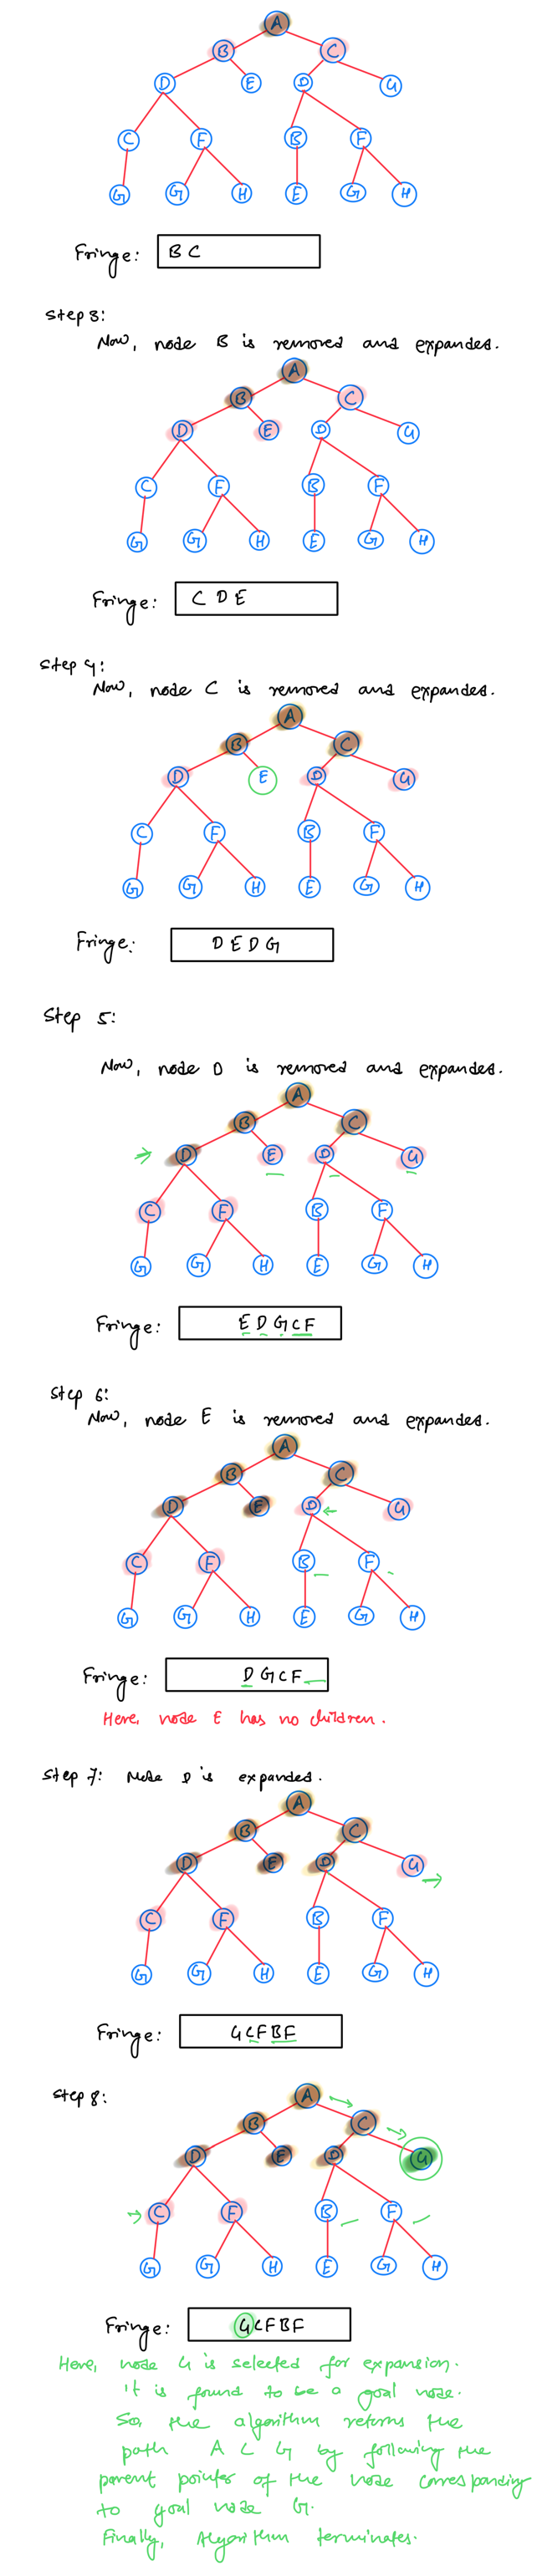 A
B C
D E D G
C F B F
G G H E G H
Fringe: B C
Step 3:
Now, node B is removed and expanded.
A
B C
D E D G
C F B F
G G H E G H
Fringe: C D E
Step 4:
Now, node C is removed and expanded.
A
B C
D E D G
C F B F
G G H E G H
Fringe: D E D G
Step 5:
Now, node D is removed and expanded.
A
B C
D E D G
C F B F
G G H E G H
Fringe: E D G C F
Step 6:
Now, node E is removed and expanded.
A
B C
D E D G
C F B F
G G H E G H
Fringe: D G C F
Here, node E has no children.
Step 7: Node D is expanded.
A
B C
D E D G
C F B F
G G H E G H
Fringe: G C F B F
Step 8:
A
B C
D E D G
C F B F
G G H E G H
Fringe: G C F B F
Here, node G is selected for expansion.
It is found to be a goal node.
So, the algorithm returns the
path A C G by following the
parent pointer of the node corresponding
to goal node G.
Finally, Algorithm terminates.